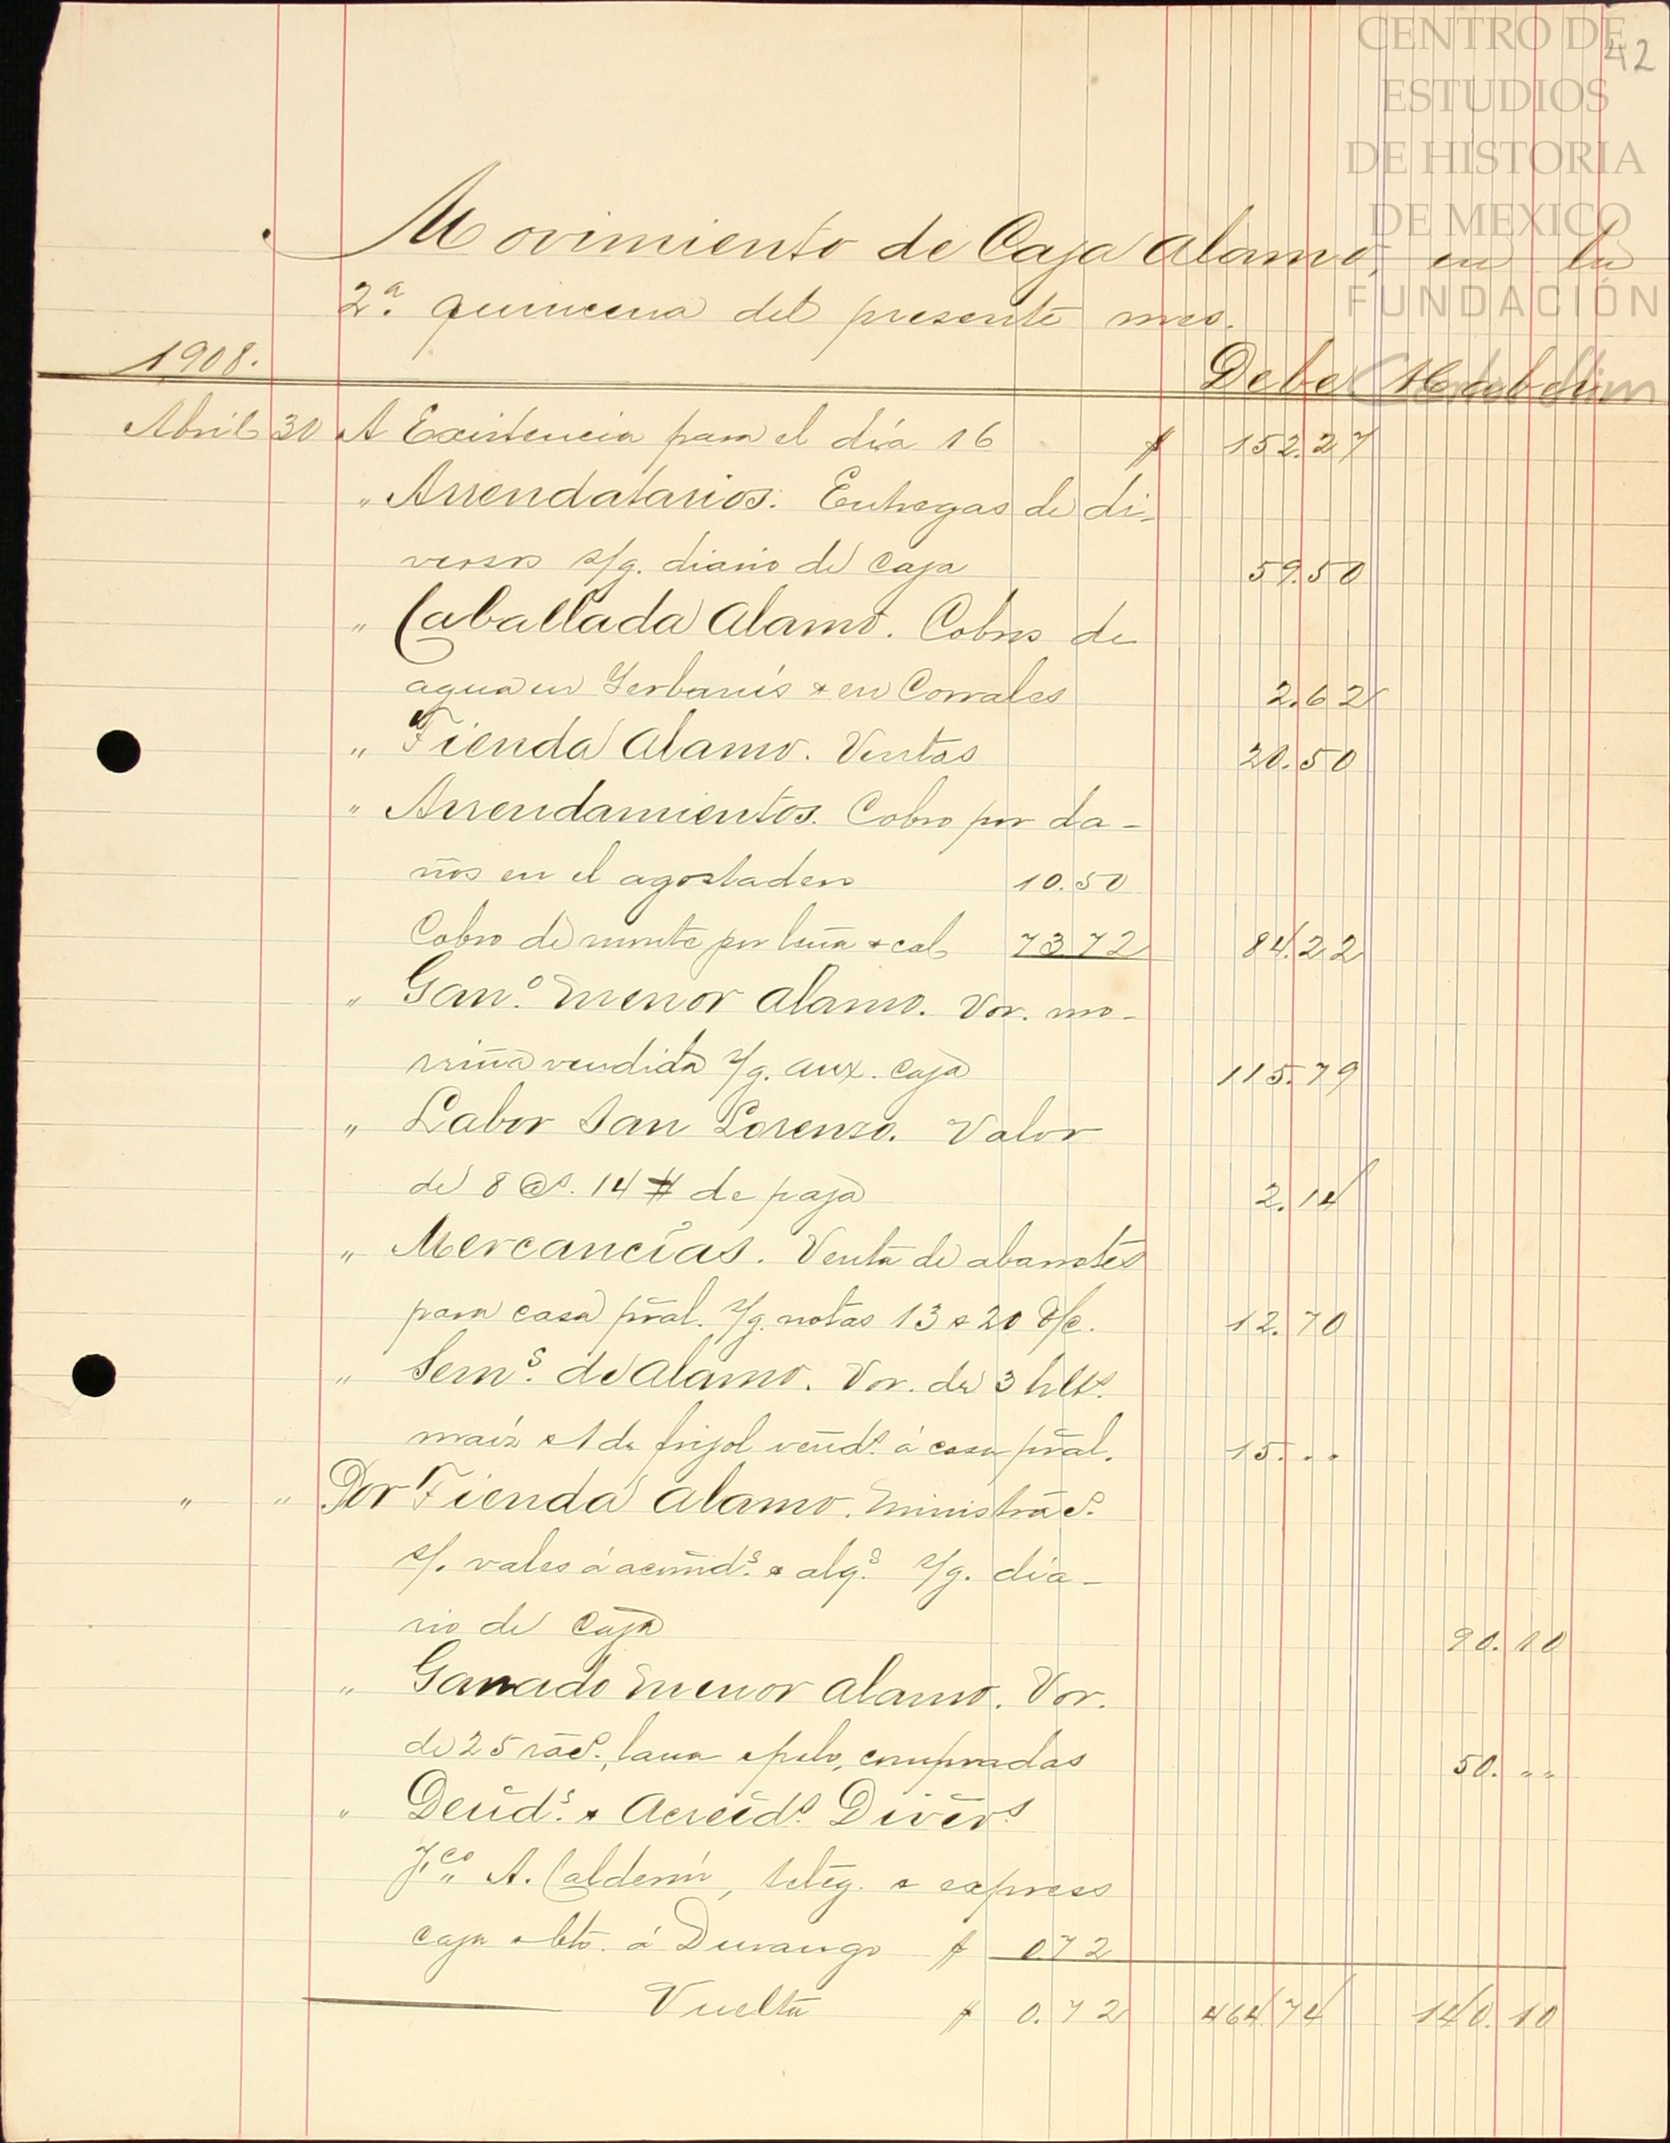 CENTRO DE
ESTUDIOS
DE HISTORIA
DE MEXICO
FUNDACIÓN
42
Movimiento de Caja Alamo, en la
2.ª quincena del presente mes.
1908. Debe Haber
Abril 30 A Existencia para el día 16 $ 152.27
" Arrendatarios. Entregas de di-
versos s/g. diario de Caja 59.50
" Caballada Alamo. Cobros de
agua en Yerbanís & en Corrales 2.62
" Tienda Alamo. Ventas 20.50
" Arrendamientos. Cobro por da-
ños en el agostadero 10.50
Cobro de monte por leña & cal 73.72 84.22
" Gan.º menor Alamo. Vor. mo-
rriña vendida s/g. aux. Caja 115.79
" Labor San Lorenzo. Valor
de 8 @s. 14 # de paja 2.14
" Mercancías. Venta de abarrotes
para casa pral. s/g. notas 13 & 20 d/c. 12.70
" Sem.s de Alamo. Vor. de 3 hlts.
maíz & 1 de frijol vend.s á casa pral. 15. ..
" " Por Tienda Alamo. Ministrac.
s/. vales á acomd.s & alq.s s/g. dia-
rio de Caja 90.10
" Ganado menor Alamo. Vor.
de 25 rac., lana & pelo, compradas 50. ..
" Deud.s & Acreed.s Divers
F.co A. Calderón, teleg. & express
caja & bto. á Durango $ 0.72
Vuelta $ 0.72 464.74 140.10